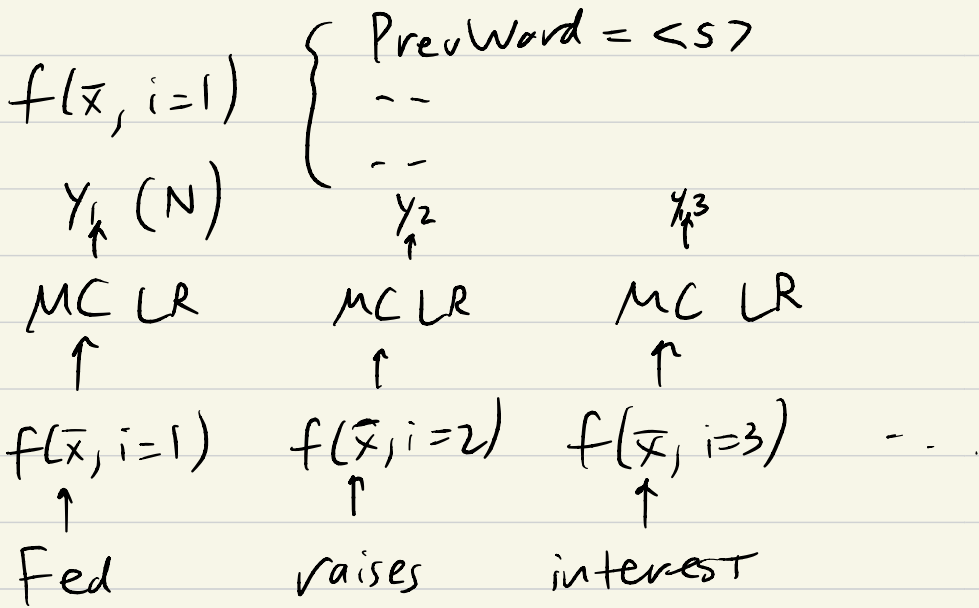 f(x̄, i=1) { PrevWord = <s>
--
--
y₁ (N) y₂ y₃
MC LR MC LR MC LR
f(x̄, i=1) f(x̄, i=2) f(x̄, i=3) - . .
Fed raises interest